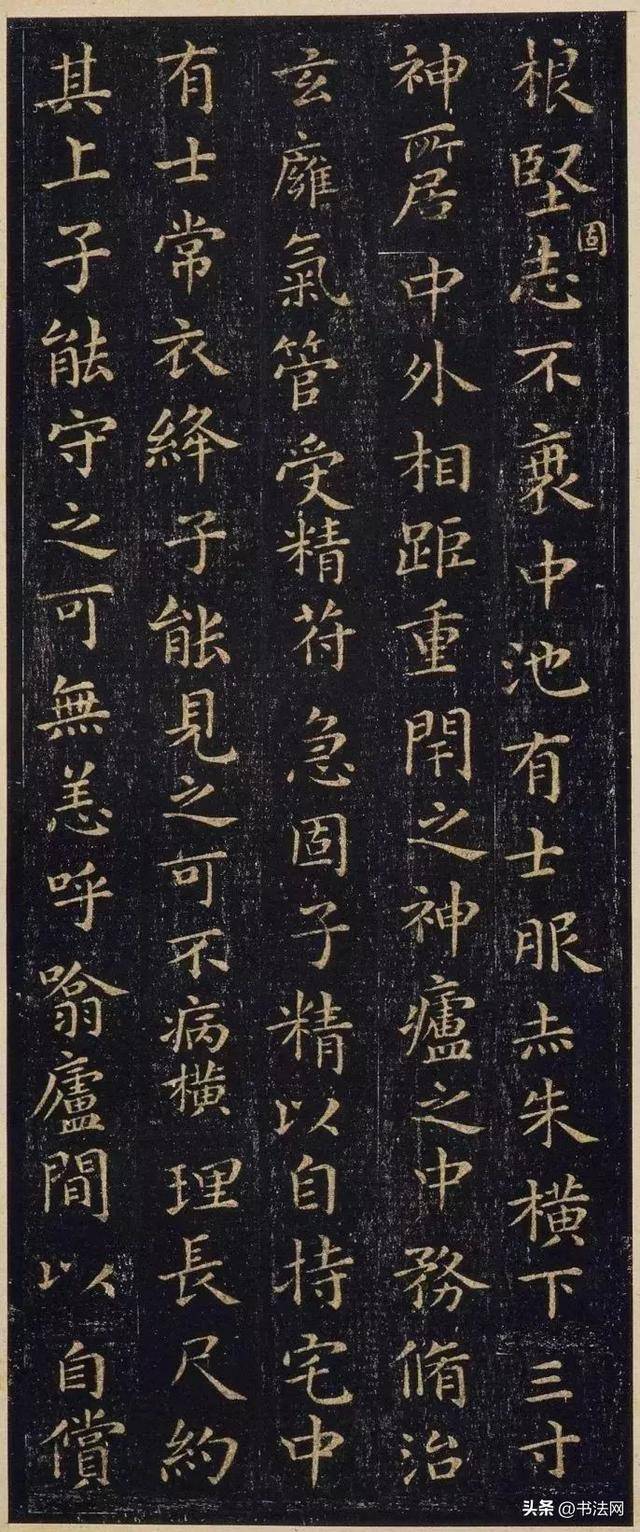 根堅固志不衰中池有士服赤朱橫下三寸
神所居中外相距重閇之神廬之中務脩治
玄廱氣管受精苻急固子精以自持宅中
有士常衣絳子能見之可不病橫理長尺約
其上子能守之可無恙呼噏廬間以自償
头条 @书法网